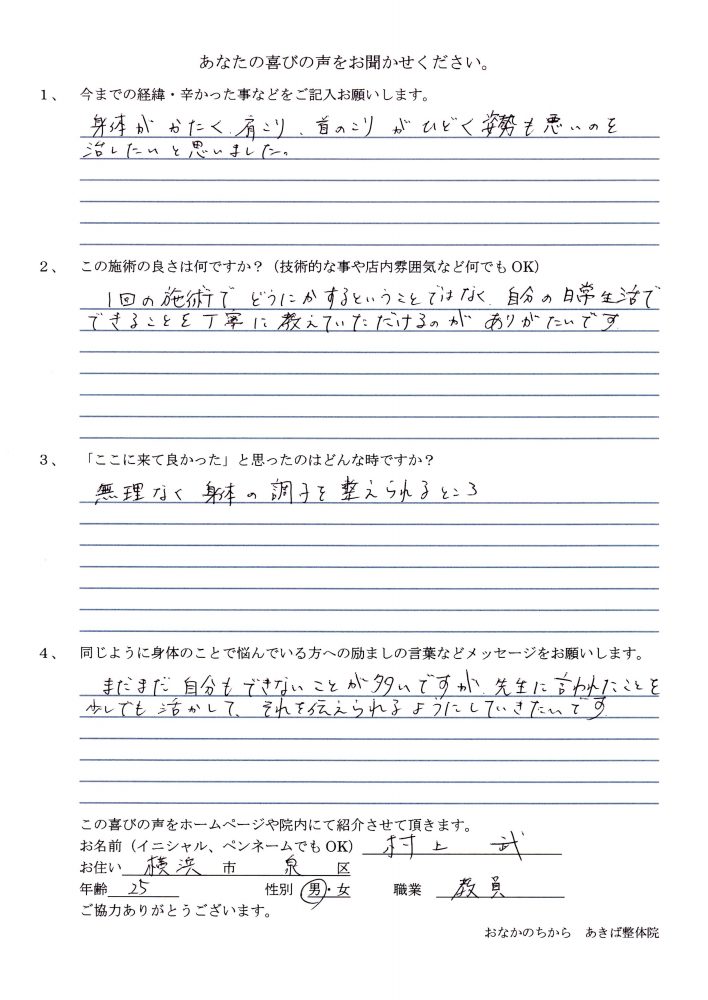 あなたの喜びの声をお聞かせください。
1、 今までの経緯・辛かった事などをご記入お願いします。
身体が かたく、肩こり、首のこり が ひどく 姿勢も 悪いのを
治したいと思いました。
2、 この施術の良さは何ですか?(技術的な事や店内雰囲気など何でもOK)
1回の施術で どうにかするということではなく、自分の日常生活で
できることを 丁寧に 教えていただけるのが ありがたいです
3、 「ここに来て良かった」と思ったのはどんな時ですか?
無理なく 身体の 調子を 整えられるところ
4、 同じように身体のことで悩んでいる方への励ましの言葉などメッセージをお願いします。
まだまだ 自分も できないことが多いですが、先生に 言われたことを
少しでも 活かして、それを伝えられるようにしていきたいです
この喜びの声をホームページや院内にて紹介させて頂きます。
お名前(イニシャル、ペンネームでもOK) 村上 武
お住い 横浜 市 泉 区
年齢 25 性別 男・女 職業 教員
ご協力ありがとうございます。
おなかのちから あきば整体院